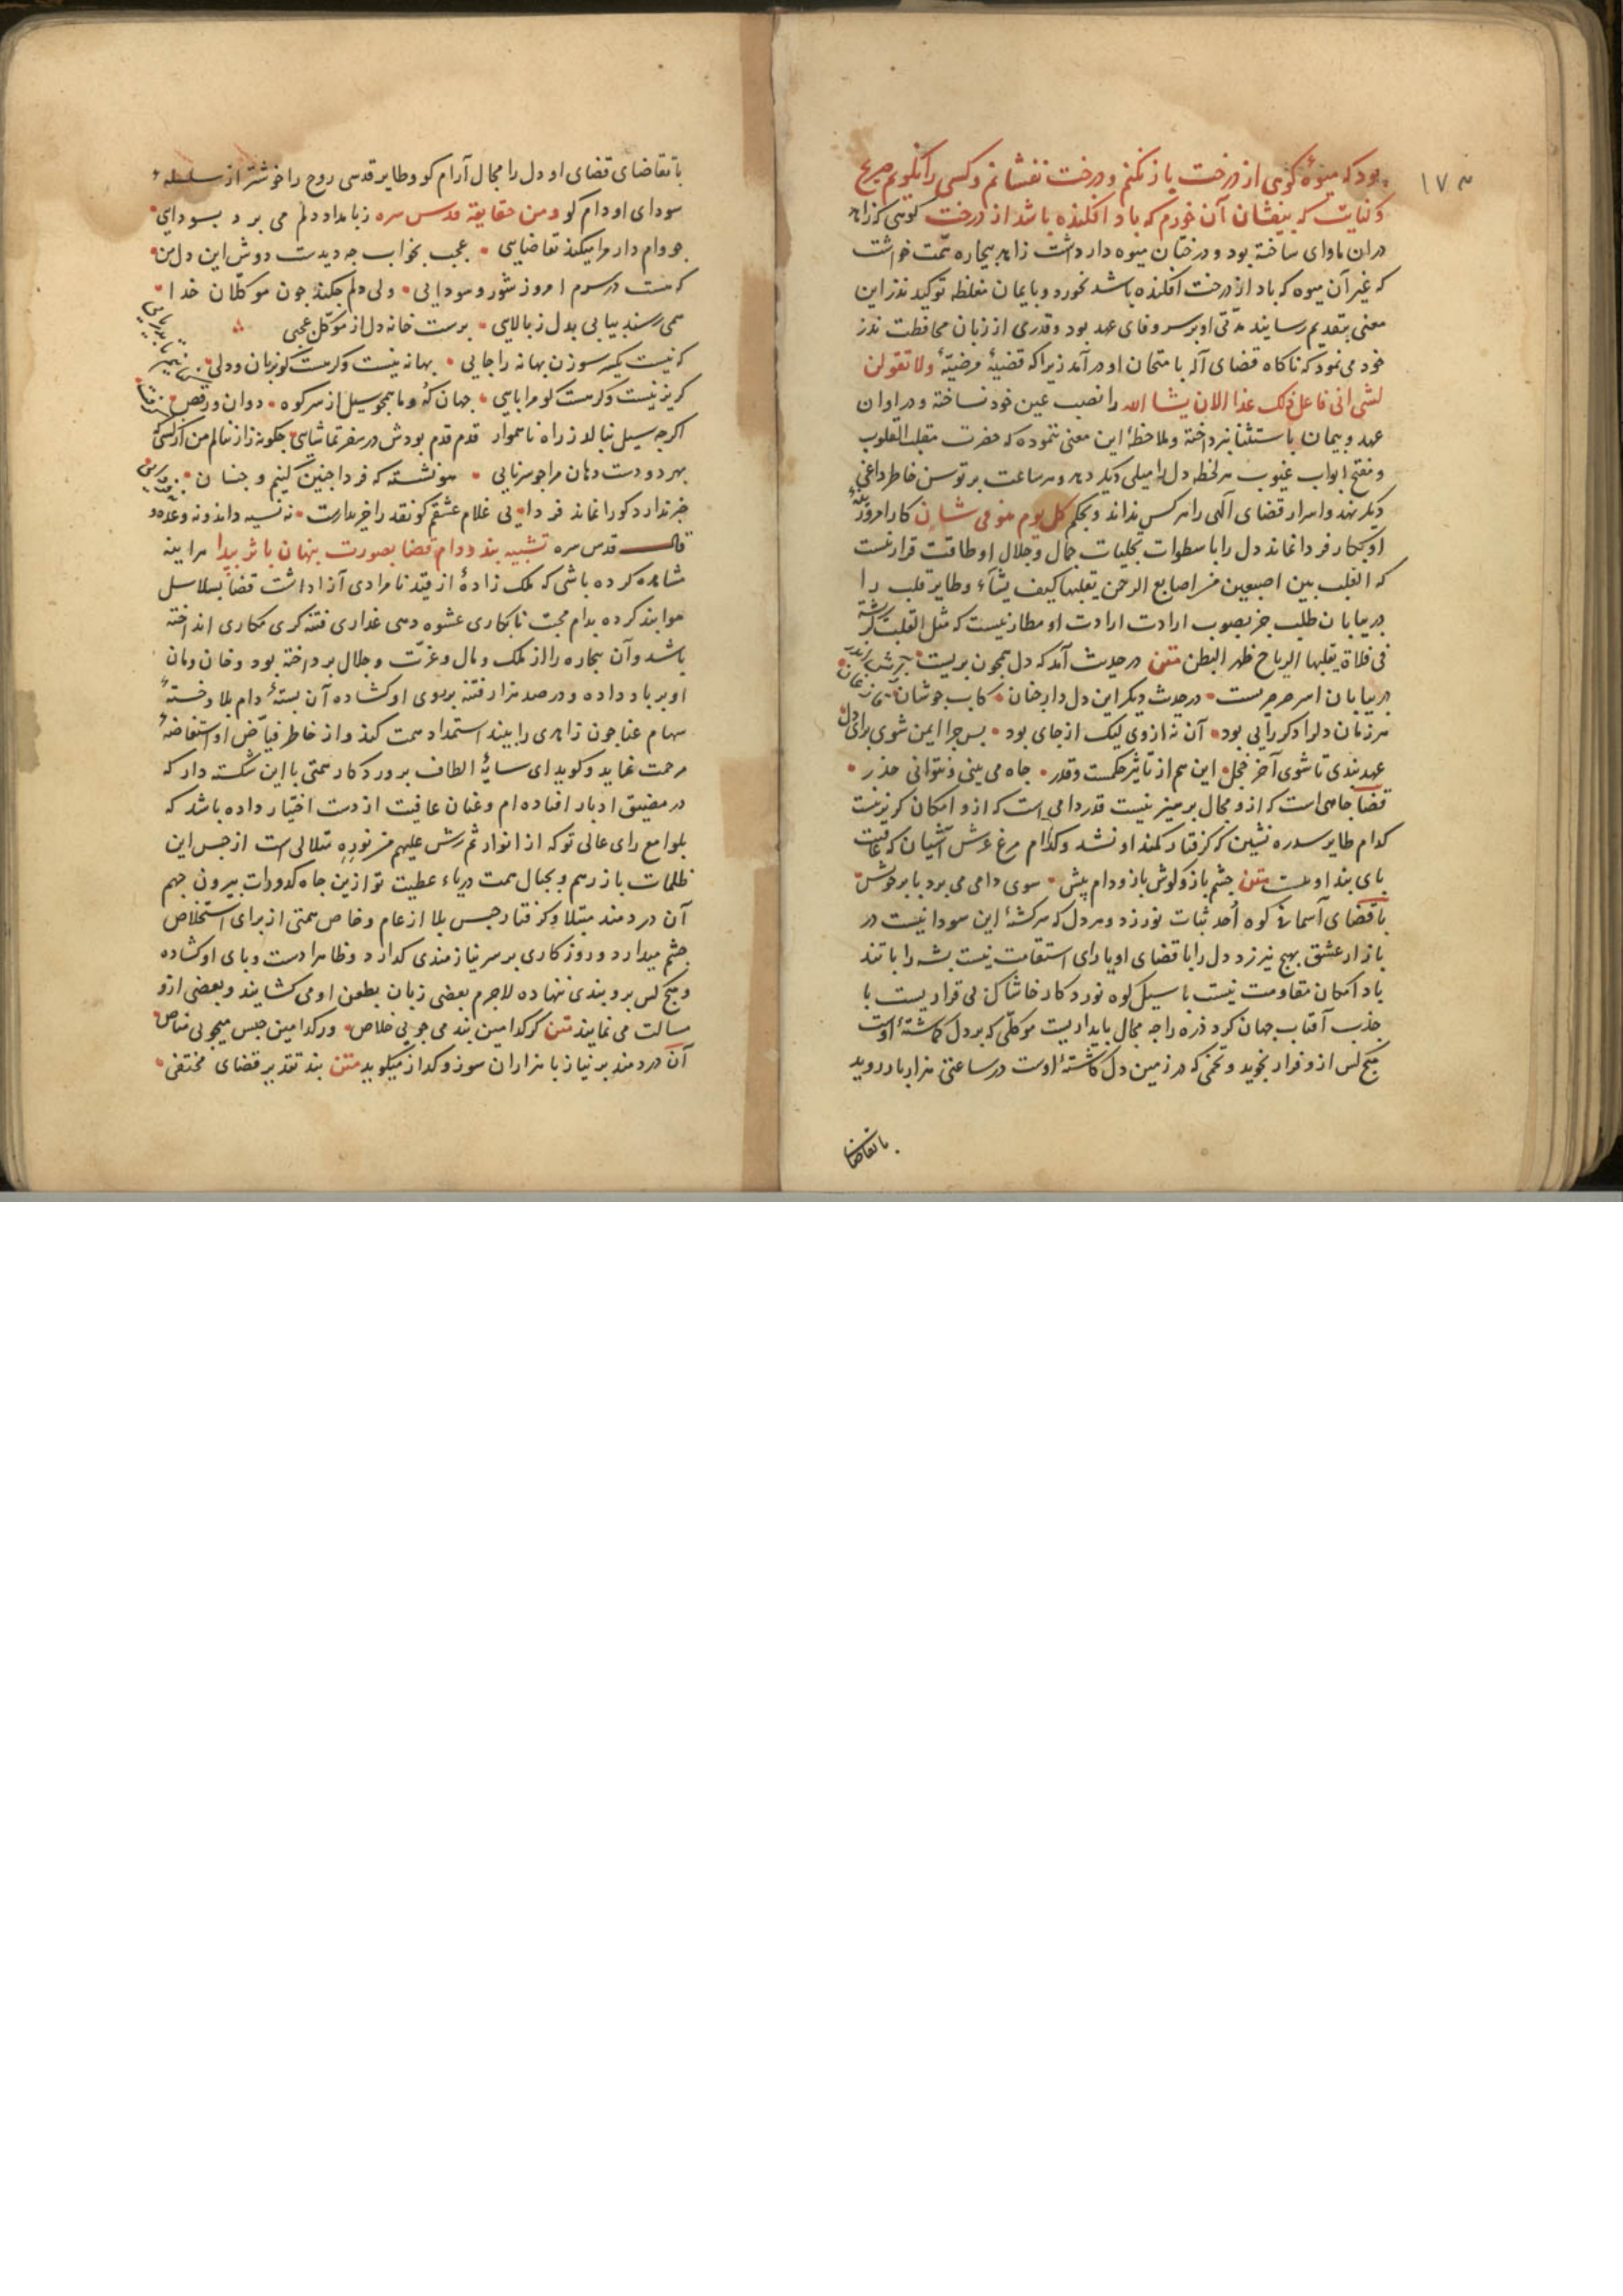 ۱۷۳
بود که میوهٔ کوهی از درخت باز نکنم و درخت نفشانم و کسی را نکویم صریح
و کنایت که بیفشان آن خورم که باد افکنده باشد از درخت کوهی که زاهد
در ان ماوای ساخته بود و درختان میوه دار داشت زاهد بیچاره همت خواست
که غیر آن میوه که باد از درخت افکنده باشد نخورد و بایمان مغلظه توکید نذر این
معنی بتقدیم رسانید مدتی او بر سر وفای عهد بود و قدری از زبان محافظت نذر
خود می نمود که ناکاه قضای آله بامتحان او در آمد زیرا که قضیهٔ مرضیهٔ ولا تقولن
لشی انی فاعل ذلک غدا الا ان یشا الله را نصب عین خود نساخته و در اوان
عهد و پیمان باستثنا نپرداخته و ملاحظهٔ این معنی ننموده که حضرت مقلب القلوب
و مفتح ابواب غیوب هر لحظه دل را میلی دیکر دهد و هر ساعت بر توسن خاطر داغی
دیکر نهد و اسرار قضای الهی را هر کس نداند و بحکم کل یوم هو فی شان کار امروز
او بکار فردا نماند دل را با سطوات تجلیات جمال و جلال او طاقت قرار نیست
که القلب بین اصبعین من اصابع الرحمن یقلبها کیف یشاء و طایر قلب را
در بیابان طلب جز بصوب ارادت ارادت او مطار نیست که مثل القلب کریشة
فی فلاة یقلبها الریاح ظهر البطن متن در حدیث آمد که دل همچون پریست
در بیابان اسیر صرصریست در حدیث دیکر این دل دان چنان کاب جوشان
هر زمان دل را دکر رایی بود آن نه از وی لیک از جای بود پس چرا ایمن شوی بر رای دل
عهد بندی تا شوی آخر خجل این هم از تاثیر حکمست و قدر چاه می بینی و نتوانی حذر
قضا چاهی است که ازو مجال پرهیز نیست قدر دامی است که ازو امکان کریز نیست
کدام طایر سدره نشین که کرفتار کمند او نشد و کدام مرغ عرش آشیان که عاقبت
پای بند او نیست متن چشم باز و کوش باز و دام پیش سوی دامی می پرد با پر خویش
با قضای آسمان کوه اُحد ثبات نورزد و هر دل که سرکشتهٔ این سودا نیست در
بازار عشق بهیچ نیرزد دل را با قضای او یارای استقامت نیست پشه را با تند
باد امکان مقاومت نیست با سیل کوه نورد کار خاشاک بی قراریست با
جذب آفتاب جهان کرد ذره را چه مجال پایداریست موکلی که بر دل کماشتهٔ اوست
هیچ کس ازو فرار نجوید و تخمی که در زمین دل کاشتهٔ اوست در ساعتی هزار بار روید
با تقاضای
با تقاضای قضای او دل را مجال آرام کو و طایر قدسی روح را خوشتر از سلسلهٔ
سودای او دام کو و من حقایقه قدس سره ز بامداد دلم می برد بسودایی
چو وام دار مرا میکند تقاضایی عجب بخواب چه دیدست دوش این دل من
که هست در سرم امروز شور و سودایی ولی دلم چکند چون موکلان خدا
همی رسند بیابی بدل ز بالایی پرست خانه دل از موکل عجبی
که نیست یکسر سوزن بهانه را جایی بهانه نیست وکر هست کو زبان و دلی
کریز نیست وکر هست کو مرا پایی جهان که و ما همچو سیل از سر کوه دوان و رقص
اکرچه سیل بنالد ز راه ناهموار قدم قدم بودش در سفر تماشایی چکونه زار ننالم من از کسی که
بهر دو دست دهان مرا چو سرنایی هوس نشسته که فردا چنین کنیم و چنان
خبر ندارد کو را نماند فردایی غلام عشقم کو نقد را خریدارست نه نسیه داند و نه وعده و
قال قدس سره تشبیه بند و دام قضا بصورت پنهان باثر پیدا هر اینه
مشاهده کرده باشی که ملک زادهٔ از قید نامرادی آزاد داشت قضا بسلاسل
هوا بند کرده بدام محبت نابکاری عشوه دهی غداری فتنه کری مکاری انداخته
باشد و آن بیچاره را از ملک و مال و عزت و جلال پرداخته بود و خان و مان
او بر باد داده و در صد هزار فتنه بر روی او کشاده آن بستهٔ دام بلا و خستهٔ
سهام عنا چون زاهدی را بیند استمداد همت کند و از خاطر فیاض او استفاضهٔ
مرحمت نماید و کوید ای سایهٔ الطاف پرورد کار همتی با این شکسته دار که
در مضیق ادبار افتاده ام و عنان عافیت از دست اختیار داده باشد که
بلوامع رای عالی تو که از انوار ثم رش علیهم من نوره متلالی است از حبس این
ظلمات باز رهم و بحبال همت دریاء عطیت تو ازین چاه کدورات بیرون جهم
آن دردمند مبتلا و کرفتار حبس بلا از عام و خاص همتی از برای استخلاص
چشم میدارد و روزکاری بر سر نیازمندی کدارد و ظاهرا دست و پای او کشاده
و هیچ کس برو بندی ننهاده لاجرم بعضی زبان بطعن او می کشایند و بعضی ازو
مسالت می نمایند متن کز کدامین بند می جویی خلاص وز کدامین حبس میجویی مناص
آن دردمند پر نیاز با هزاران سوز و کداز میکوید متن بند تقدیر قضای مختفی